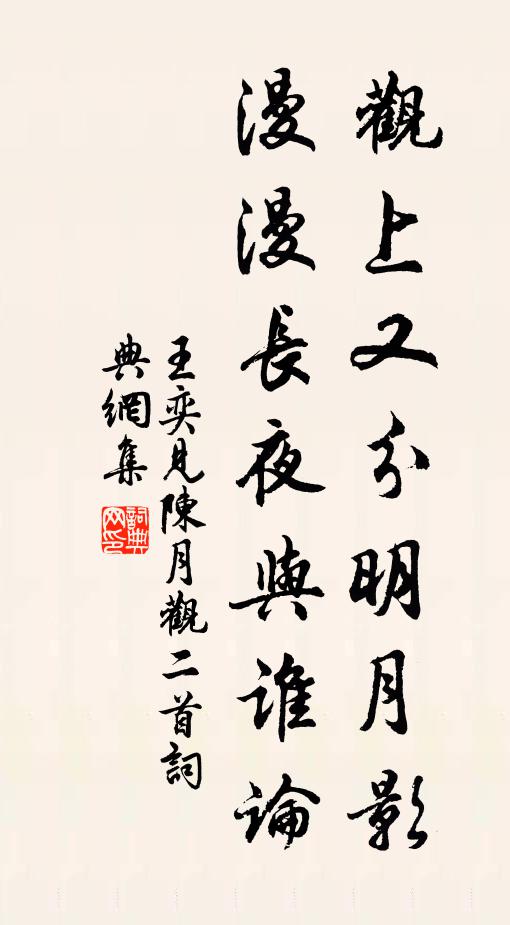 觀上又分明月影
漫漫長夜與誰論
王奕見陳月觀二首詞
典網集
詞典網印